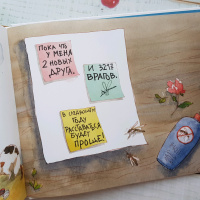 ПОКА ЧТО
У МЕНЯ
2 НОВЫХ
ДРУГА.
И 3217
ВРАГОВ.
В СЛЕДУЮЩЕМ
ГОДУ
РАССТАВАТЬСЯ
БУДЕТ
ПРОЩЕ!